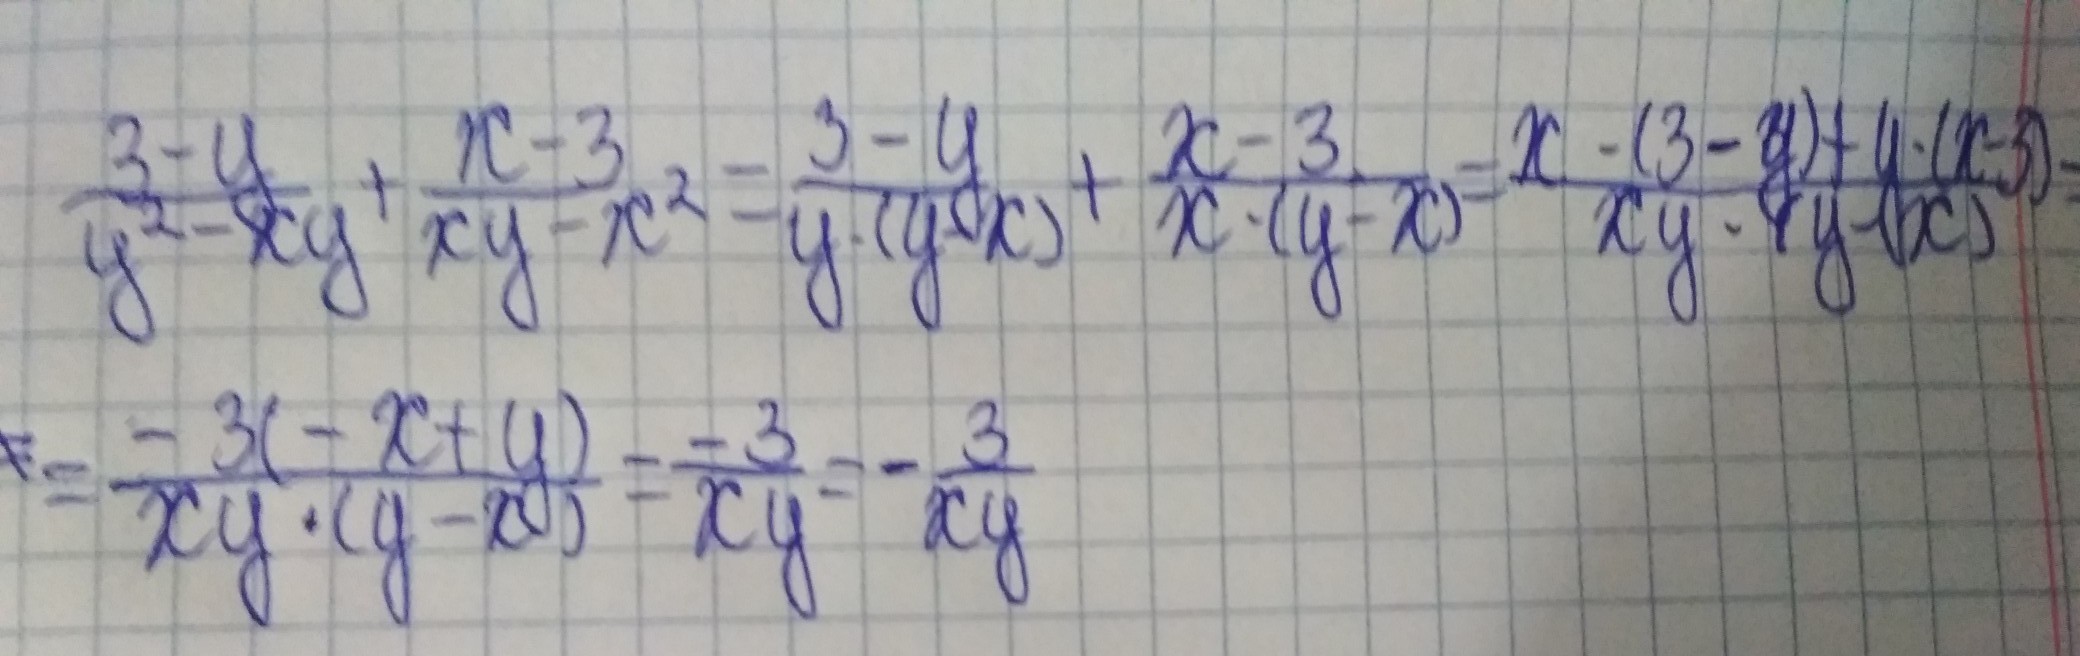 (3-y)/(y²-xy) + (x-3)/(xy-x²) = (3-y)/(y·(y-x)) + (x-3)/(x·(y-x)) = (x·(3-y)+y·(x-3))/(xy·(y-x)) =
= (-3(-x+y))/(xy·(y-x)) = (-3)/(xy) = -3/(xy)